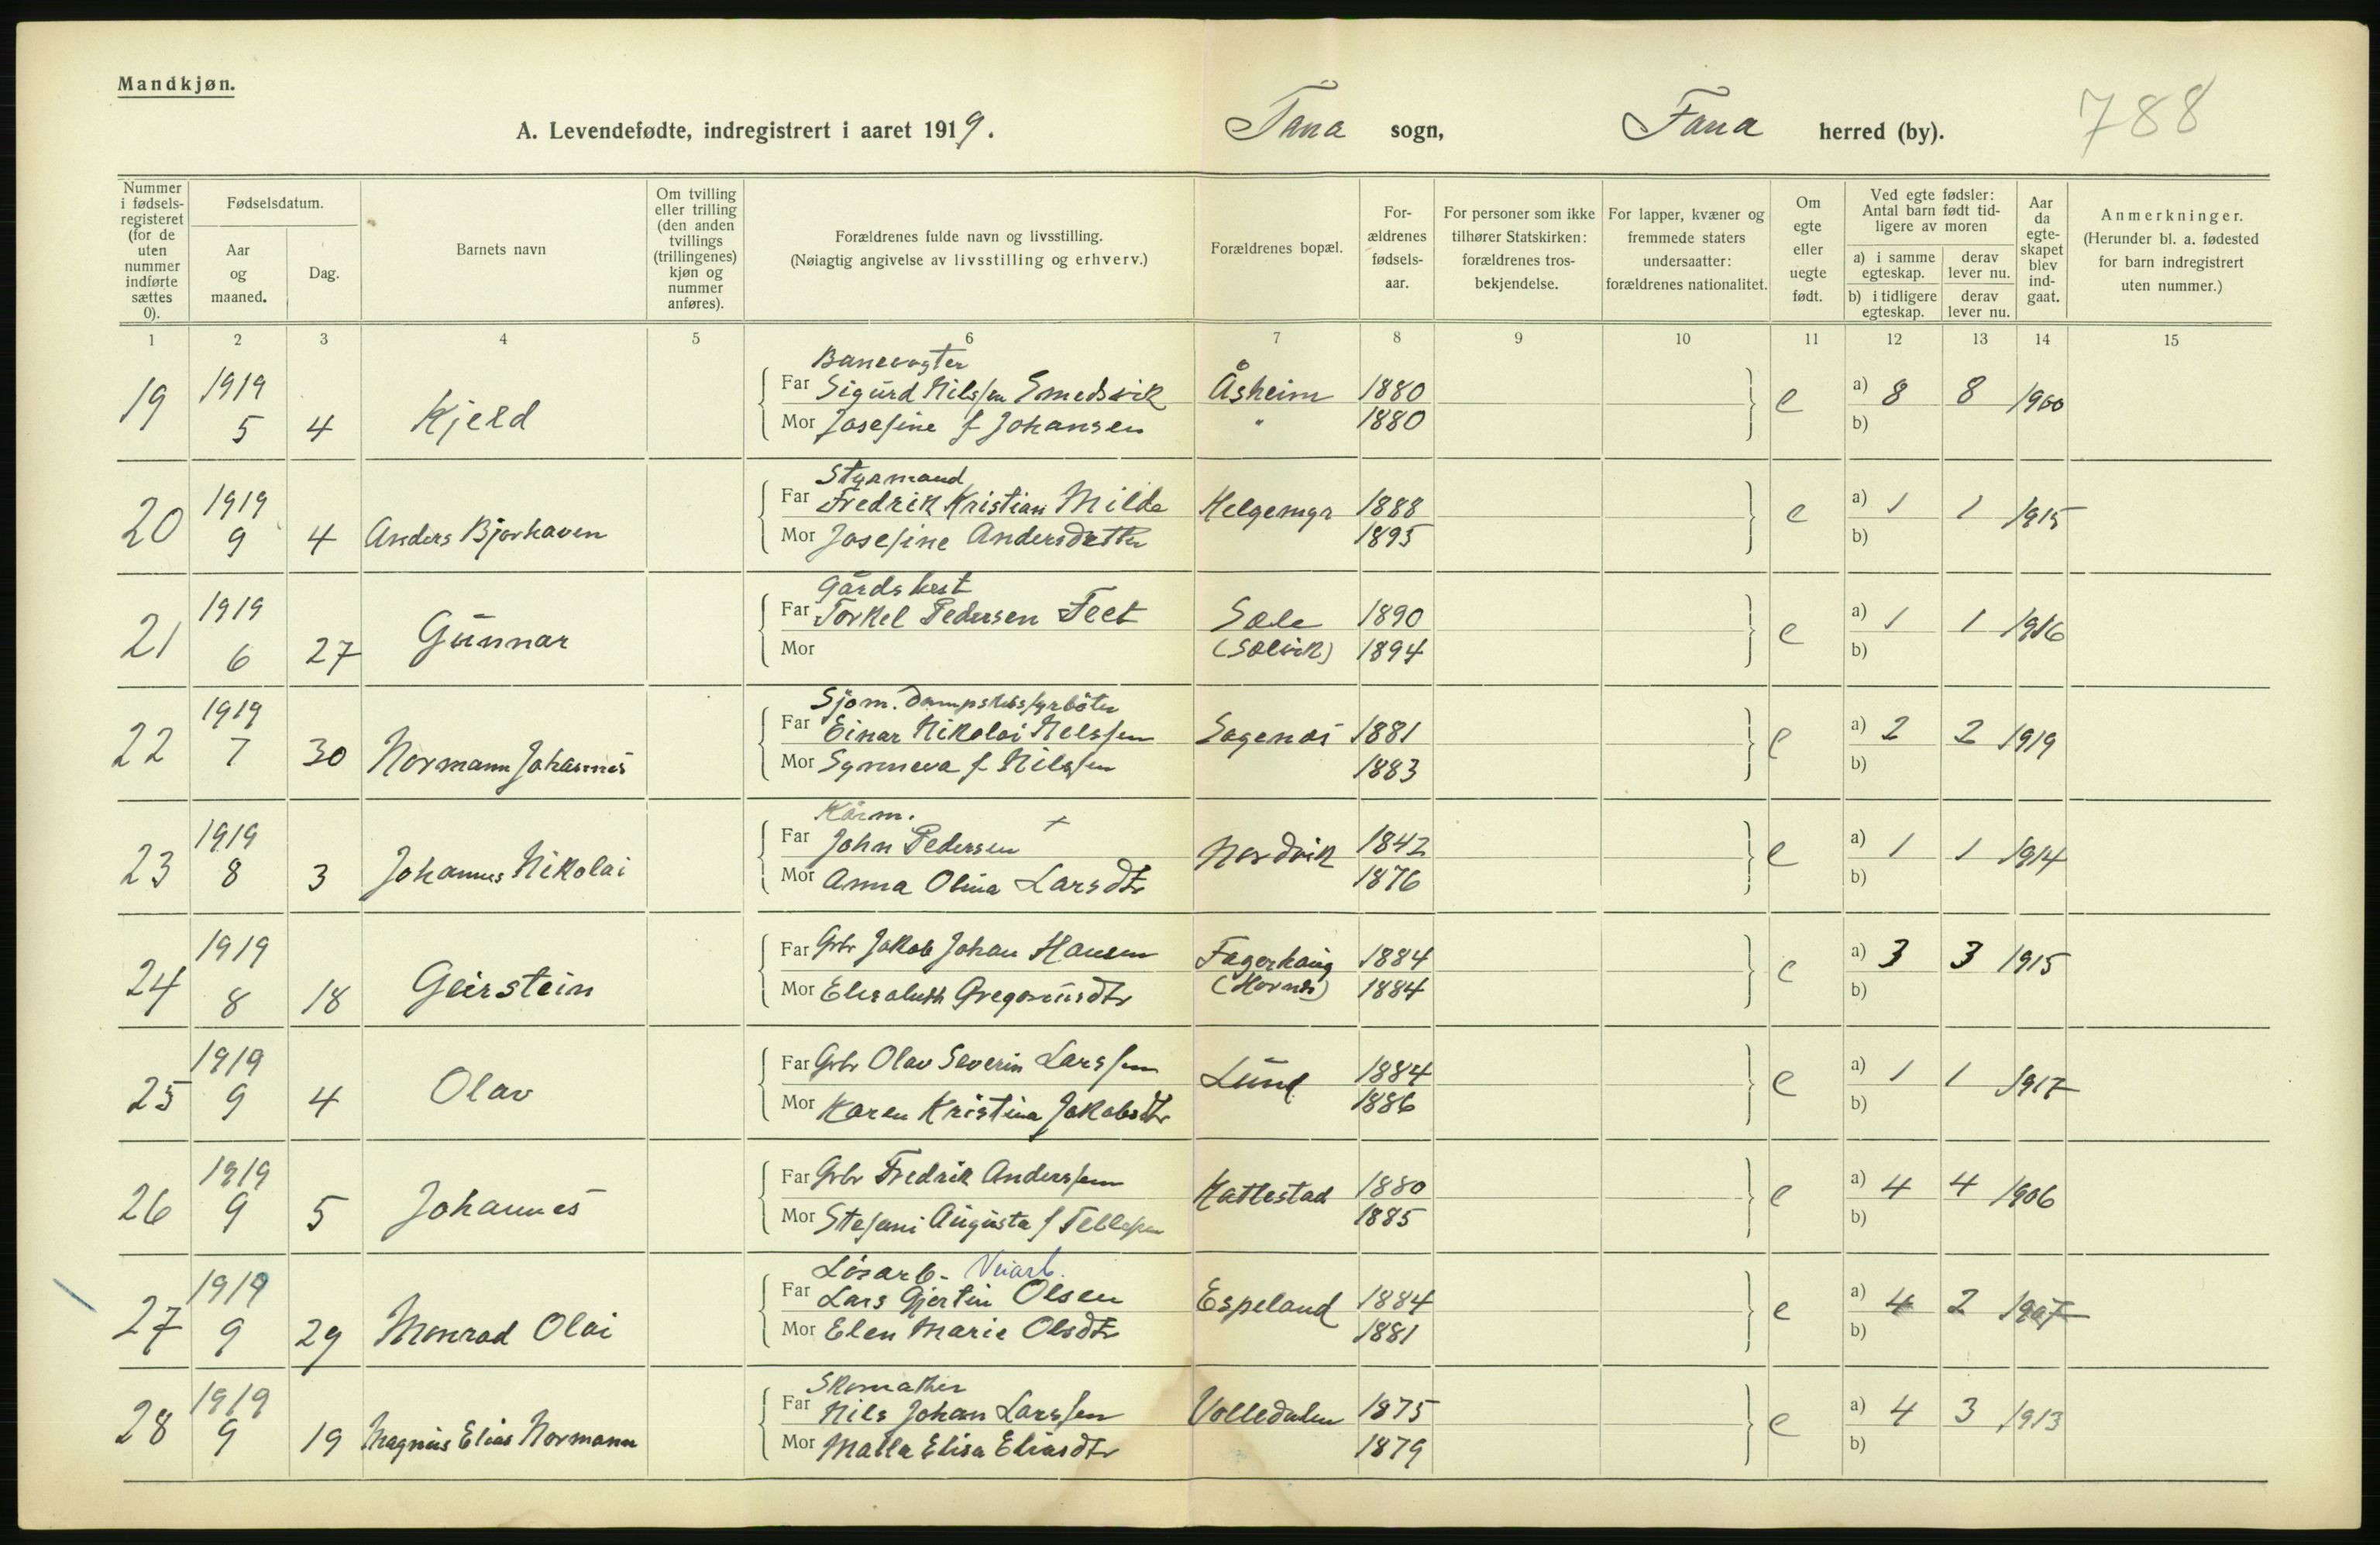 Mandkjøn.
A. Levendefødte, indregistrert i aaret 1919. Fana sogn, Fana herred (by). 788
Nummer i fødselsregisteret (for de uten nummer indførte sættes 0).
Fødselsdatum.
Aar og maaned.
Dag.
Barnets navn
Om tvilling eller trilling (den anden tvillings (trillingenes) kjøn og nummer anføres).
Forældrenes fulde navn og livsstilling.
(Nøiagtig angivelse av livsstilling og erhverv.)
Forældrenes bopæl.
Forældrenes fødselsaar.
For personer som ikke tilhører Statskirken: forældrenes trosbekjendelse.
For lapper, kvæner og fremmede staters undersaatter: forældrenes nationalitet.
Om egte eller uegte født.
Ved egte fødsler: Antal barn født tidligere av moren
a) i samme egteskap. derav lever nu.
b) i tidligere egteskap. derav lever nu.
Aar da egteskapet blev indgaat.
Anmerkninger.
(Herunder bl. a. fødested for barn indregistrert uten nummer.)
1 2 3 4 5 6 7 8 9 10 11 12 13 14 15
Banevogter
19 1919 Far Sigurd Nilssen Smedsvik Åsheim 1880 e a) 8 8 1900
5 4 Kjeld Mor Josefine f Johansen " 1880 b)
Styrmand
20 1919 Far Fredrik Kristian Milde Helgemyr 1888 e a) 1 1 1915
9 4 Anders Bjorhaven Mor Josefine Andersdatter 1895 b)
Gårdsbest
21 1919 Far Torkel Pedersen Feet Sæle 1890 e a) 1 1 1916
6 27 Gunnar Mor (Sælvik) 1894 b)
Sjøm. Dampskibsfyrbøter
22 1919 Far Einar Nikolai Nelssen Sagenes 1881 e a) 2 2 1919
7 30 Normann Johannes Mor Synneva f Nilssen 1883 b)
Kårm.
23 1919 Far John Pedersen + Nordvik 1842 e a) 1 1 1914
8 3 Johannes Nikolai Mor Anna Olina Larsdtr 1876 b)
24 1919 Far Gbr Jakob Johan Hansen Fagerhaug 1884 e a) 3 3 1915
8 18 Geirstein Mor Elisabeth Gregoriusdtr (Hornes) 1884 b)
25 1919 Far Gbr Olav Severin Larssen Lund 1884 e a) 1 1 1917
9 4 Olav Mor Karen Kristina Jakobsdtr 1886 b)
26 1919 Far Gbr Fredrik Anderssen Hattestad 1880 e a) 4 4 1906
9 5 Johannes Mor Stefani Augusta f Tellefsen 1885 b)
Løsarb. Veiarb.
27 1919 Far Lars Gjertin Olsen Espeland 1884 e a) 4 2 1907
9 29 Monrad Olai Mor Elen Marie Olsdtr 1881 b)
Skomaker
28 1919 Far Nils Johan Larssen Volledalen 1875 e a) 4 3 1913
9 19 Magnus Elias Normann Mor Malla Elisa Eliasdtr 1879 b)